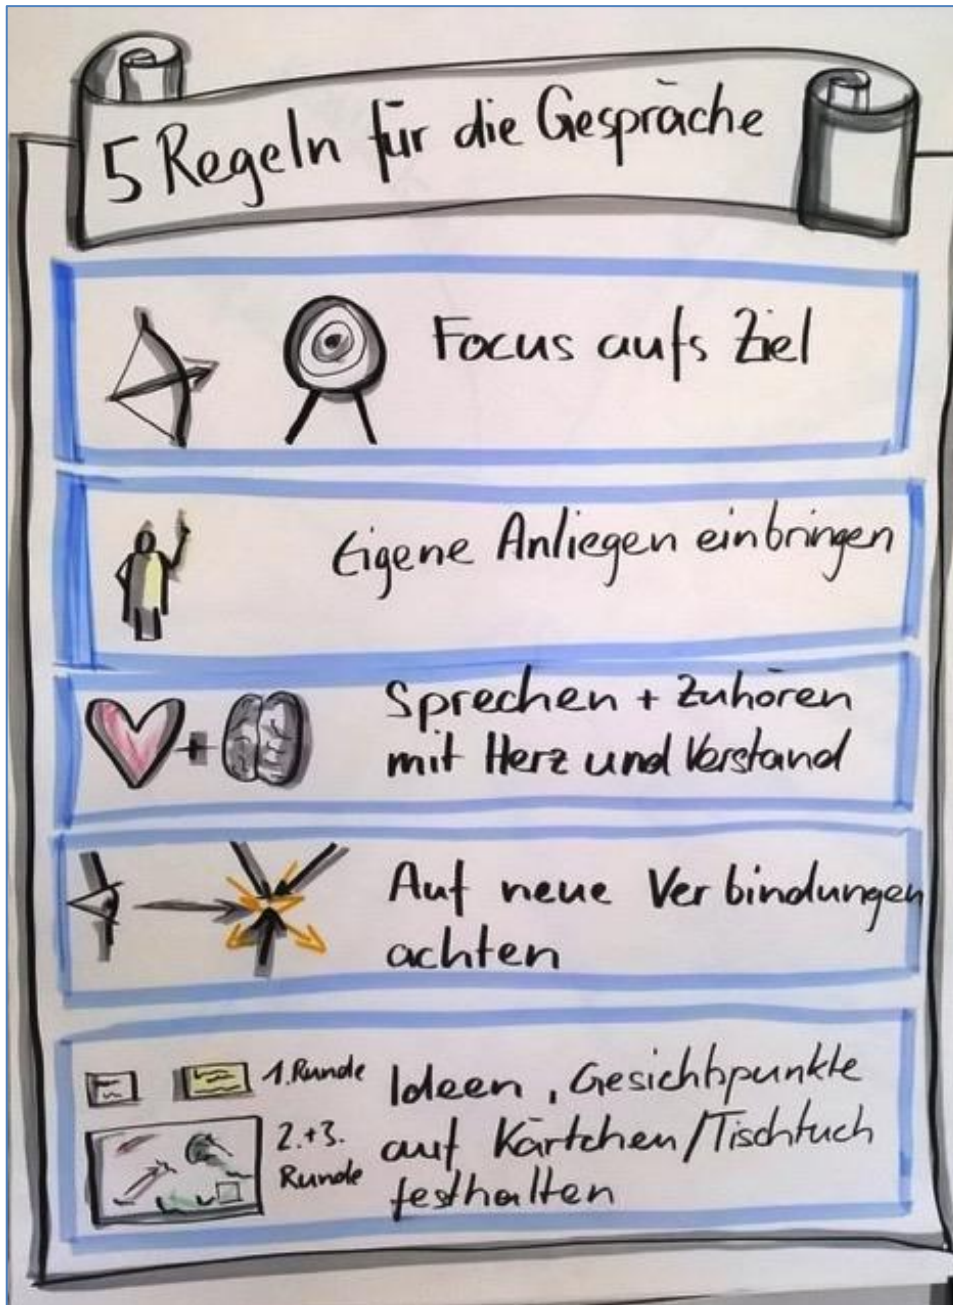 5 Regeln für die Gespräche
Focus aufs Ziel
Eigene Anliegen einbringen
Sprechen + Zuhören
mit Herz und Verstand
Auf neue Verbindungen
achten
1. Runde
2.+3.
Runde
Ideen, Gesichtspunkte
auf Kärtchen/Tischtuch
festhalten